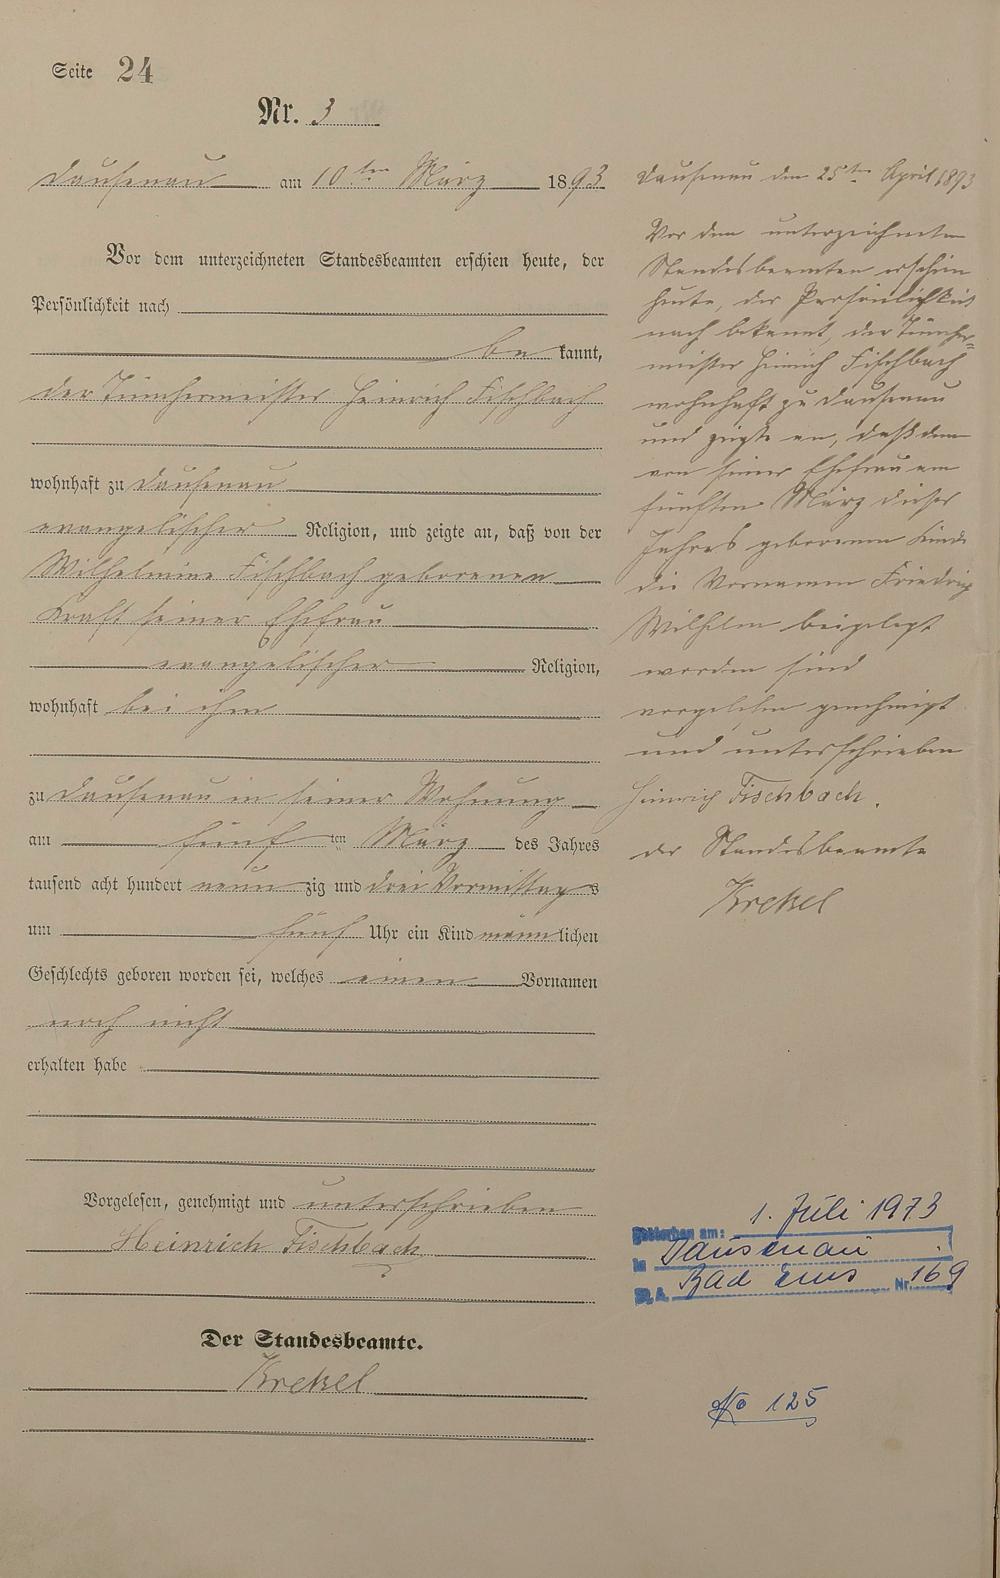 Seite 24
Nr. 3
Dausenau am 10ten März 1893
Vor dem unterzeichneten Standesbeamten erschien heute, der
Persönlichkeit nach
be kannt,
der Tünchermeister Heinrich Fischbach
wohnhaft zu Dausenau
evangelischer Religion, und zeigte an, daß von der
Wilhelmine Fischbach geborenen
Kraft seiner Ehefrau
evangelischer Religion,
wohnhaft bei ihm
zu Dausenau in seiner Wohnung
am fünf ten März des Jahres
tausend acht hundert neun zig und drei Vormittags
um fünf Uhr ein Kind männ lichen
Geschlechts geboren worden sei, welches einen Vornamen
noch nicht
erhalten habe
Vorgelesen, genehmigt und unterschrieben
Heinrich Fischbach
Der Standesbeamte.
Krekel
Dausenau den 25ten April 1893
Vor dem unterzeichneten
Standesbeamten erschien
heute, der Persönlichkeit
nach bekannt, der Tüncher=
meister Heinrich Fischbach
wohnhaft zu Dausenau
und zeigte an, daß dem
von seiner Ehefrau am
fünften März dieses
Jahres geborenen Kinde
die Vornamen Friedrich
Wilhelm beigelegt
worden sind
vorgelesen genehmigt
und unterschrieben
Heinrich Fischbach.
der Standesbeamte
Krekel
Gestorben am: 1. Juli 1973
in Dausenau
St. A. Bad Ems Nr. 169
No 125